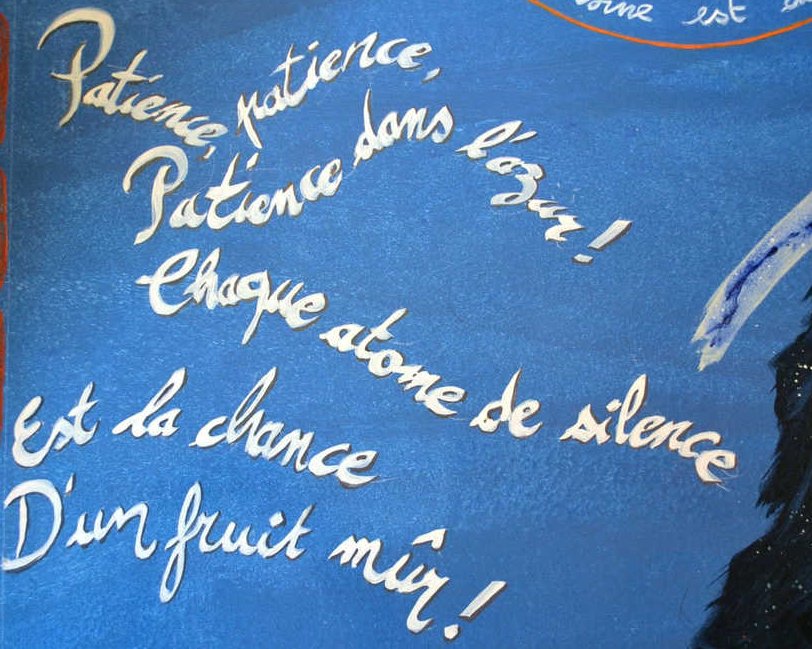 est
Patience, patience,
Patience dans l'azur !
Chaque atome de silence
Est la chance
D'un fruit mûr !